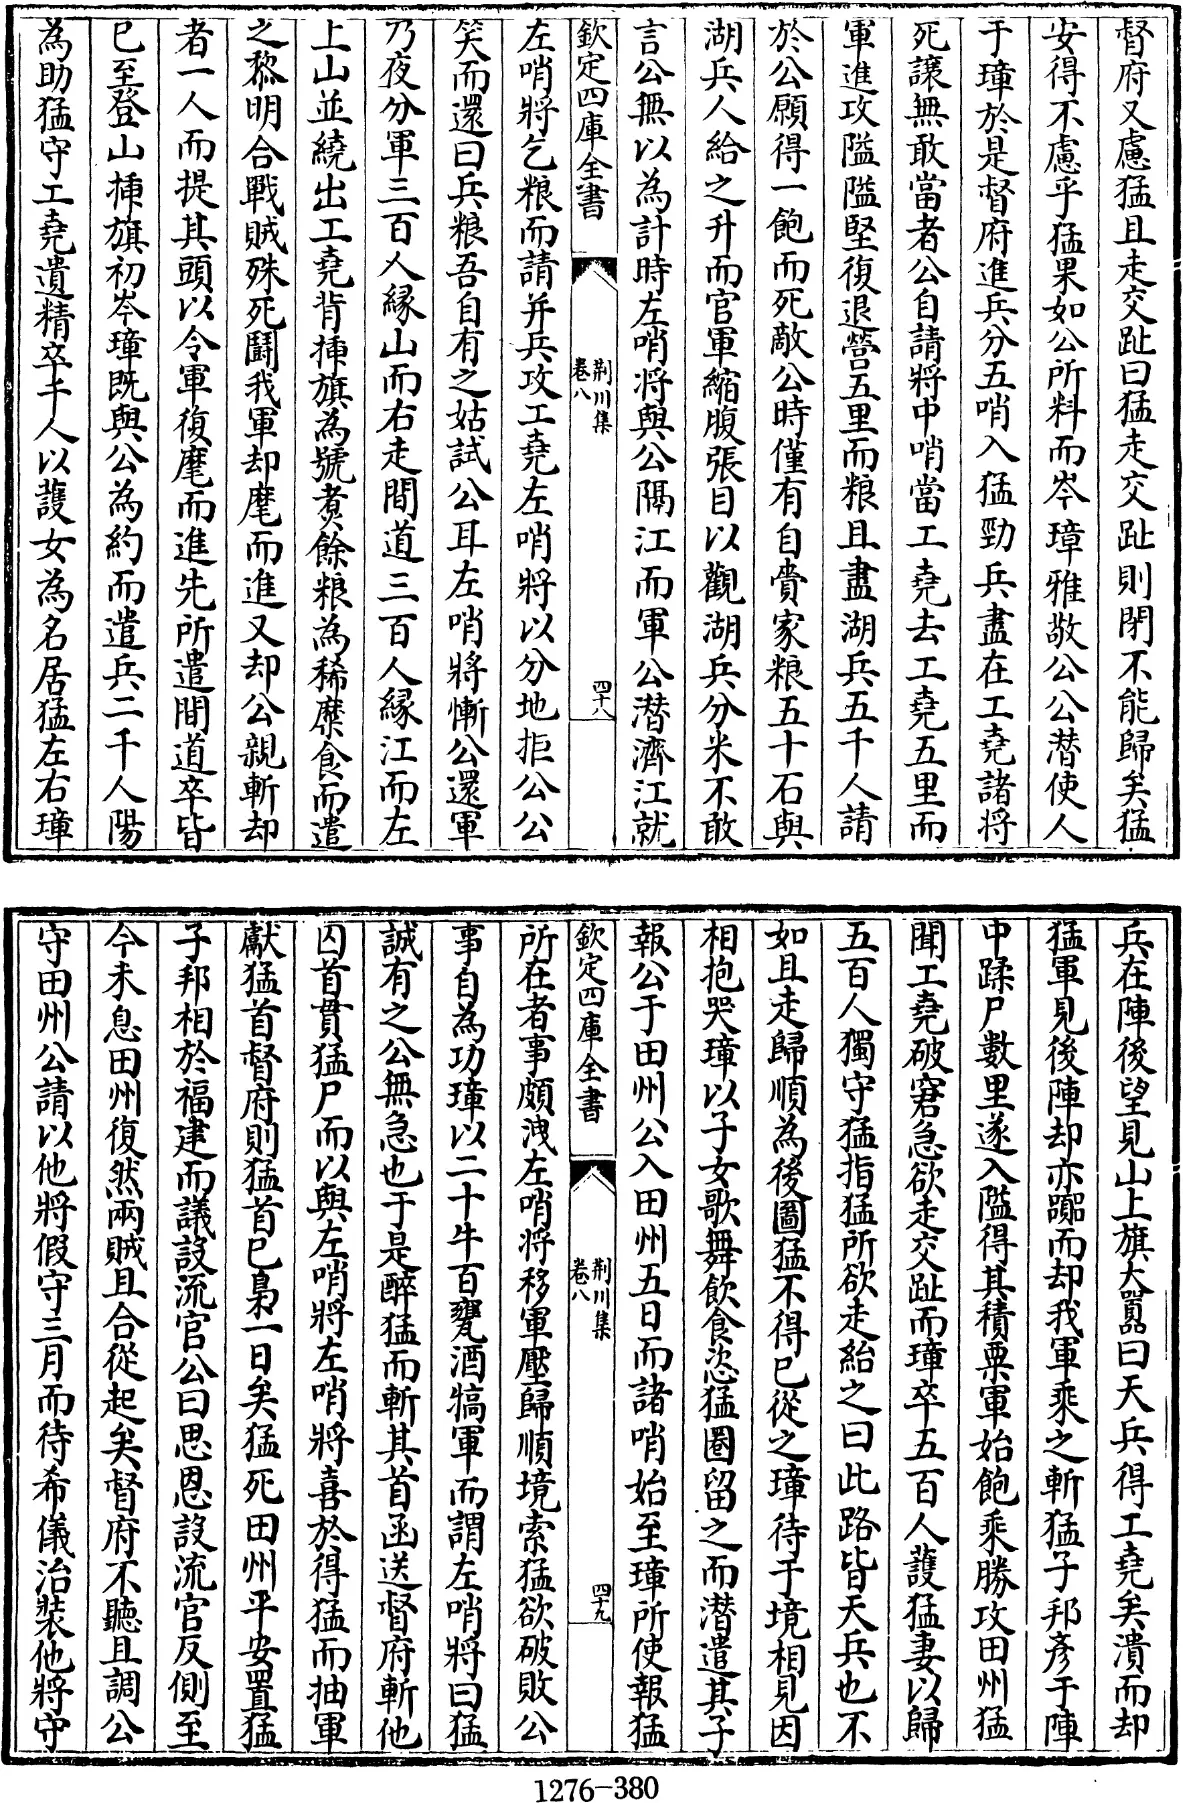 督府又慮猛且走交趾曰猛走交趾則閉不能歸矣猛
安得不慮乎猛果如公所料而岑璋雅敬公公潛使人
于璋於是督府進兵分五哨入猛勁兵盡在工堯諸將
死讓無敢當者公自請將中哨當工堯去工堯五里而
軍進攻隘隘堅復退營五里而粮且盡湖兵五千人請
於公願得一飽而死敵公時僅有自賫家粮五十石與
湖兵人給之升而官軍縮腹張目以觀湖兵分米不敢
言公無以為計時左哨將與公隔江而軍公潛濟江就
欽定四庫全書
荆川集
卷八
四十八
左哨將乞粮而請并兵攻工堯左哨將以分地拒公公
笑而還曰兵粮吾自有之姑試公耳左哨將慚公還軍
乃夜分軍三百人緣山而右走間道三百人緣江而左
上山並繞出工堯背揷旗為號煑餘粮為稀糜食而遣
之黎明合戰賊殊死鬭我軍却麾而進又却公親斬却
者一人而提其頭以令軍復麾而進先所遣間道卒皆
已至登山揷旗初岑璋既與公為約而遣兵二千人陽
為助猛守工堯遺精卒千人以護女為名居猛左右璋
兵在陣後望見山上旗大嚣曰天兵得工堯矣潰而却
猛軍見後陣却亦躐而却我軍乘之斬猛子邦彥于陣
中蹂尸數里遂入隘得其積粟軍始飽乘勝攻田州猛
聞工堯破窘急欲走交趾而璋卒五百人護猛妻以歸
五百人獨守猛指猛所欲走紿之曰此路皆天兵也不
如且走歸順為後圖猛不得已從之璋待于境相見因
相抱哭璋以子女歌舞飲食恣猛圏留之而潛遣其子
報公于田州公入田州五日而諸哨始至璋所使報猛
欽定四庫全書
荆川集
卷八
四十九
所在者事頗洩左哨將移軍壓歸順境索猛欲破敗公
事自為功璋以二十牛百甕酒犒軍而謂左哨將曰猛
誠有之公無急也于是醉猛而斬其首函送督府斬他
囚首貫猛尸而以與左哨將左哨將喜於得猛而抽軍
獻猛首督府則猛首已梟一日矣猛死田州平安置猛
子邦相於福建而議設流官公曰思恩設流官反側至
今未息田州復然兩賊且合從起矣督府不聽且調公
守田州公請以他將假守三月而待希儀治裝他將守
1276-380